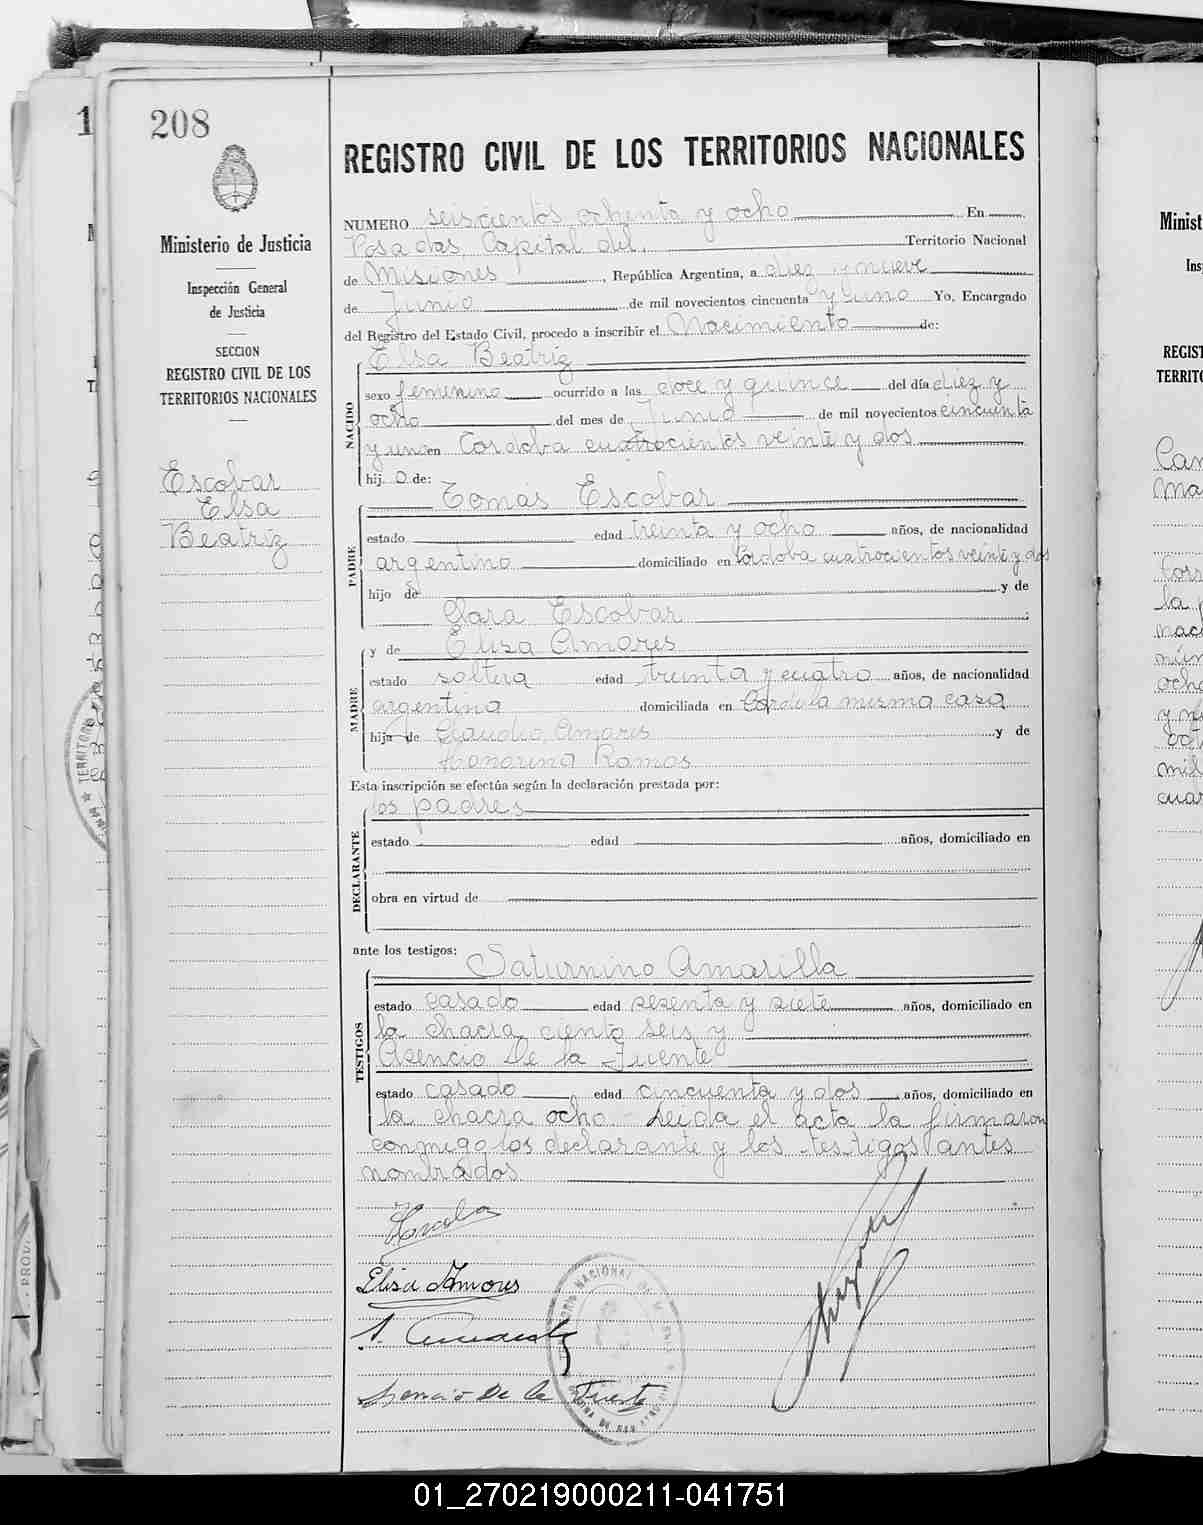 208
Ministerio de Justicia
Inspección General
de Justicia
SECCION
REGISTRO CIVIL DE LOS
TERRITORIOS NACIONALES
Escobar
Elsa
Beatriz
REGISTRO CIVIL DE LOS TERRITORIOS NACIONALES
NUMERO seiscientos ochenta y ocho En
Posadas, Capital del Territorio Nacional
de Misiones, República Argentina, a diez y nueve
de Junio de mil novecientos cincuenta y uno Yo, Encargado
del Registro del Estado Civil, procedo a inscribir el Nacimiento de:
NACIDO
Elsa Beatriz
sexo femenino ocurrido a las doce y quince del día diez y
ocho del mes de Junio de mil novecientos cincuenta
y uno en Cordoba cuatrocientos veinte y dos
hij. o de:
PADRE
Tomás Escobar
estado edad treinta y ocho años, de nacionalidad
argentino domiciliado en Cordoba cuatrocientos veinte y dos
hijo de y de
Sara Escobar
MADRE
y de Elisa Amores
estado soltera edad treinta y cuatro años, de nacionalidad
argentina domiciliada en la misma casa
hija de Claudio Amores y de
Honorina Ramos
Esta inscripción se efectúa según la declaración prestada por:
DECLARANTE
los padres
estado edad años, domiciliado en
obra en virtud de
ante los testigos:
TESTIGOS
Saturnino Amarilla
estado casado edad sesenta y siete años, domiciliado en
la chacra ciento seis y
Asencio De la Fuente
estado casado edad cincuenta y dos años, domiciliado en
la chacra ocho - Leida el acta la firmaron
conmigo los declarante y los testigos antes
nombrados
Elisa Amores
Asencio De la Fuente
01_270219000211-041751